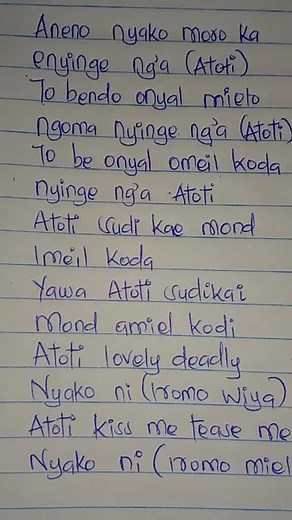 Aneno nyako moro ka
enyinge ng'a (Atoti)
To bendo onyal mielo
ngoma nyinge ng'a (Atoti)
To be onyal omeil koda
nyinge ng'a Atoti
Atoti sudi kae mond
Imeil koda
Yawa Atoti sudikai
mond amiel kodi
Atoti lovely deadly
Nyako ni (iromo wiya)
Atoti kiss me tease me
Nyako ni (iromo miel